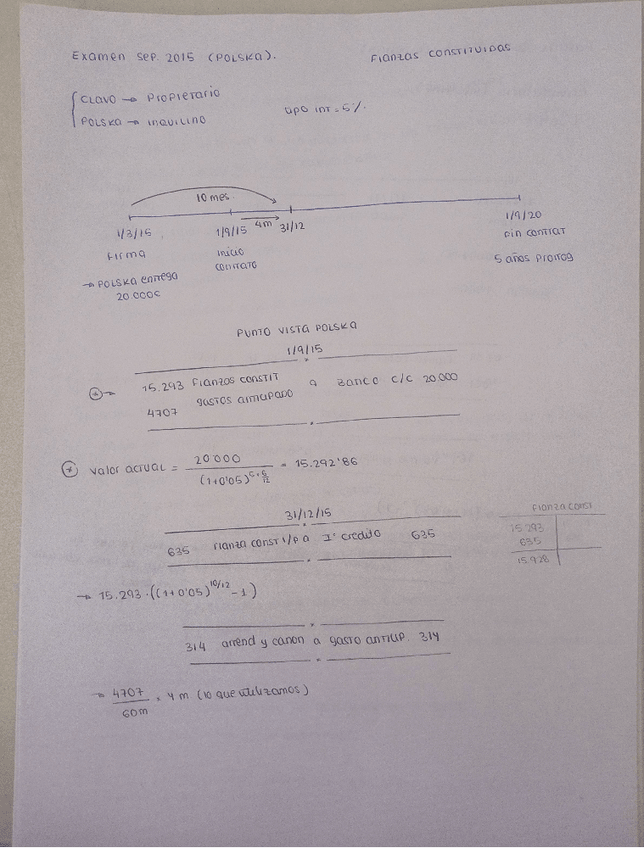 Examen Sep. 2015 (POLSKA). FIANZAS CONSTITUIDAS
CLAVO → PROPIETARIO
POLSKA → INQUILINO
tipo int = 5%.
10 mes
4m
1/3/15 1/9/15 31/12 1/9/20
Firma inicio contrato fin contrat
→ POLSKA entrega 20 000€ 5 años prorrog
PUNTO VISTA POLSKA
1/9/15
15.293 Fianzas constit a Banco c/c 20.000
4707 gastos anticipado
Valor actual = 20 000 / (1+0'05)^{5+6/12} = 15.292'86
31/12/15
635 Fianza const l/p a Iº credito 635
Fianza const
15.293
635
15.928
→ 15.293 · ((1+0'05)^{10/12} - 1)
314 arrend y canon a gasto anticip. 314
→ 4707 / 60m × 4 m (lo que utilizamos)